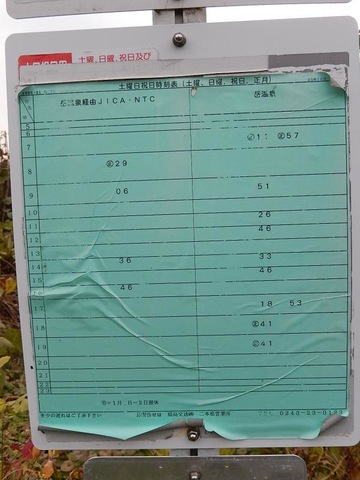 土曜、日曜、祝日及び
土曜日祝日時刻表（土曜、日曜、祝日、正月）
岳温泉経由ＪＩＣＡ・ＮＴＣ 岳温泉
5
6
7 11 57
8 29
9 06 51
10 26
11 46
12
13 36 33
14 46
15 46
16
17 18 53
18 41
19 41
20
21
22
23
多少の遅れはご了承下さい お問合せは 福島交通㈱ 二本松営業所 0243-23-0123